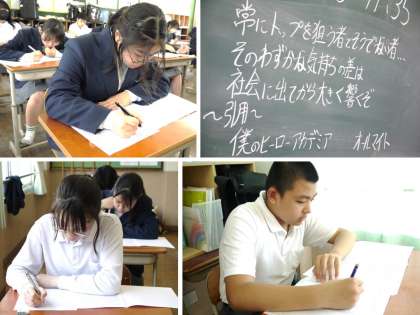 11:35
常にトップを狙う者とそうでない者…
そのわずかな気持ちの差は
社会に出てから大きく響くぞ
～引用～
僕のヒーローアカデミア　オールマイト